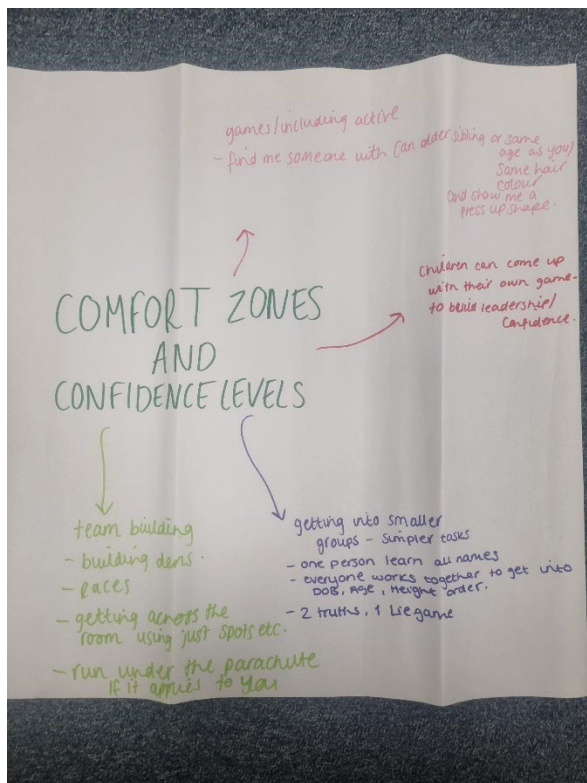 games/including active
- find me someone with (an older sibling or same
age as you/
same hair
colour
and show me a
press up shape.
Children can come up
with their own game
to build leadership/
confidence.
COMFORT ZONES
AND
CONFIDENCE LEVELS
team building
- building dens.
- races
- getting across the
room using just spots etc.
- run under the parachute
if it applies to you
getting into smaller
groups - simpler tasks
- one person learn all names
- everyone works together to get into
DOB, Age, Height order.
- 2 truths, 1 Lie game